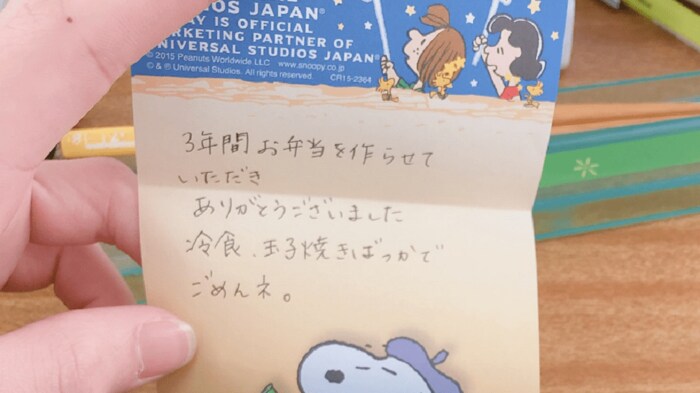 OS JAPAN®
AY IS OFFICIAL
MARKETING PARTNER OF
UNIVERSAL STUDIOS JAPAN®
© 2015 Peanuts Worldwide LLC www.snoopy.co.jp
© & ® Universal Studios. All rights reserved. CR15-2364
3年間お弁当を作らせて
いただき
ありがとうございました
冷食、玉子焼きばっかで
ごめんネ。